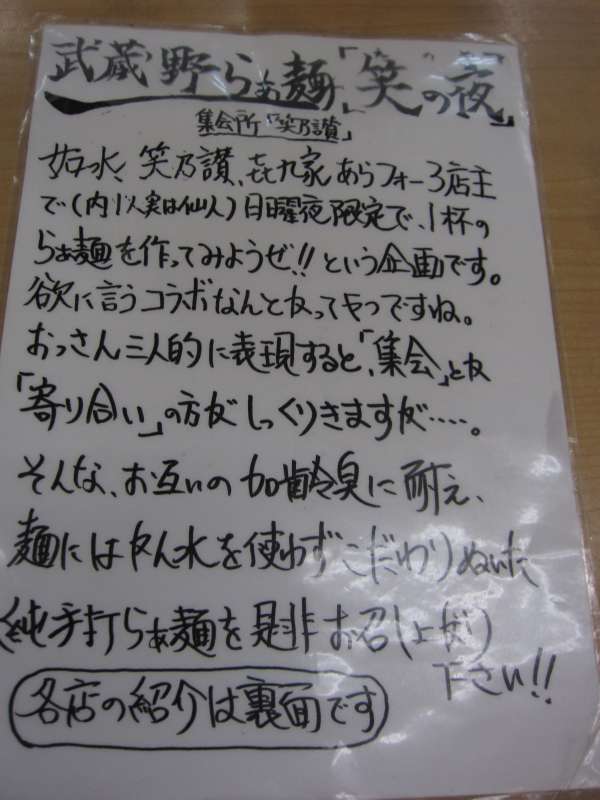 武蔵野らぁ麺「笑の夜」
集会所「笑乃讃」
如水、笑乃讃、㐂九家 あらフォー3店主
で(内1人実は仙人)日曜夜限定で、1杯の
らぁ麺を作ってみようぜ!!という企画です。
欲に言うコラボなんとなってヤつですね。
おっさん三人的に表現すると、「集会」とな
「寄り合い」の方がしっくりきますが‥‥。
そんな、お互いの加齢臭に耐え、
麺にはかん水を使わずこだわりぬいた
純手打らぁ麺を是非お召し上がり
下さい!!
各店の紹介は裏面です